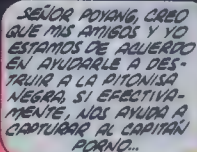 SEÑOR POYANG, CREO
QUE MIS AMIGOS Y YO
ESTAMOS DE ACUERDO
EN AYUDARLE A DES-
TRUIR A LA PITONISA
NEGRA, SI EFECTIVA-
MENTE, NOS AYUDA A
CAPTURAR AL CAPITÁN
PORNO...